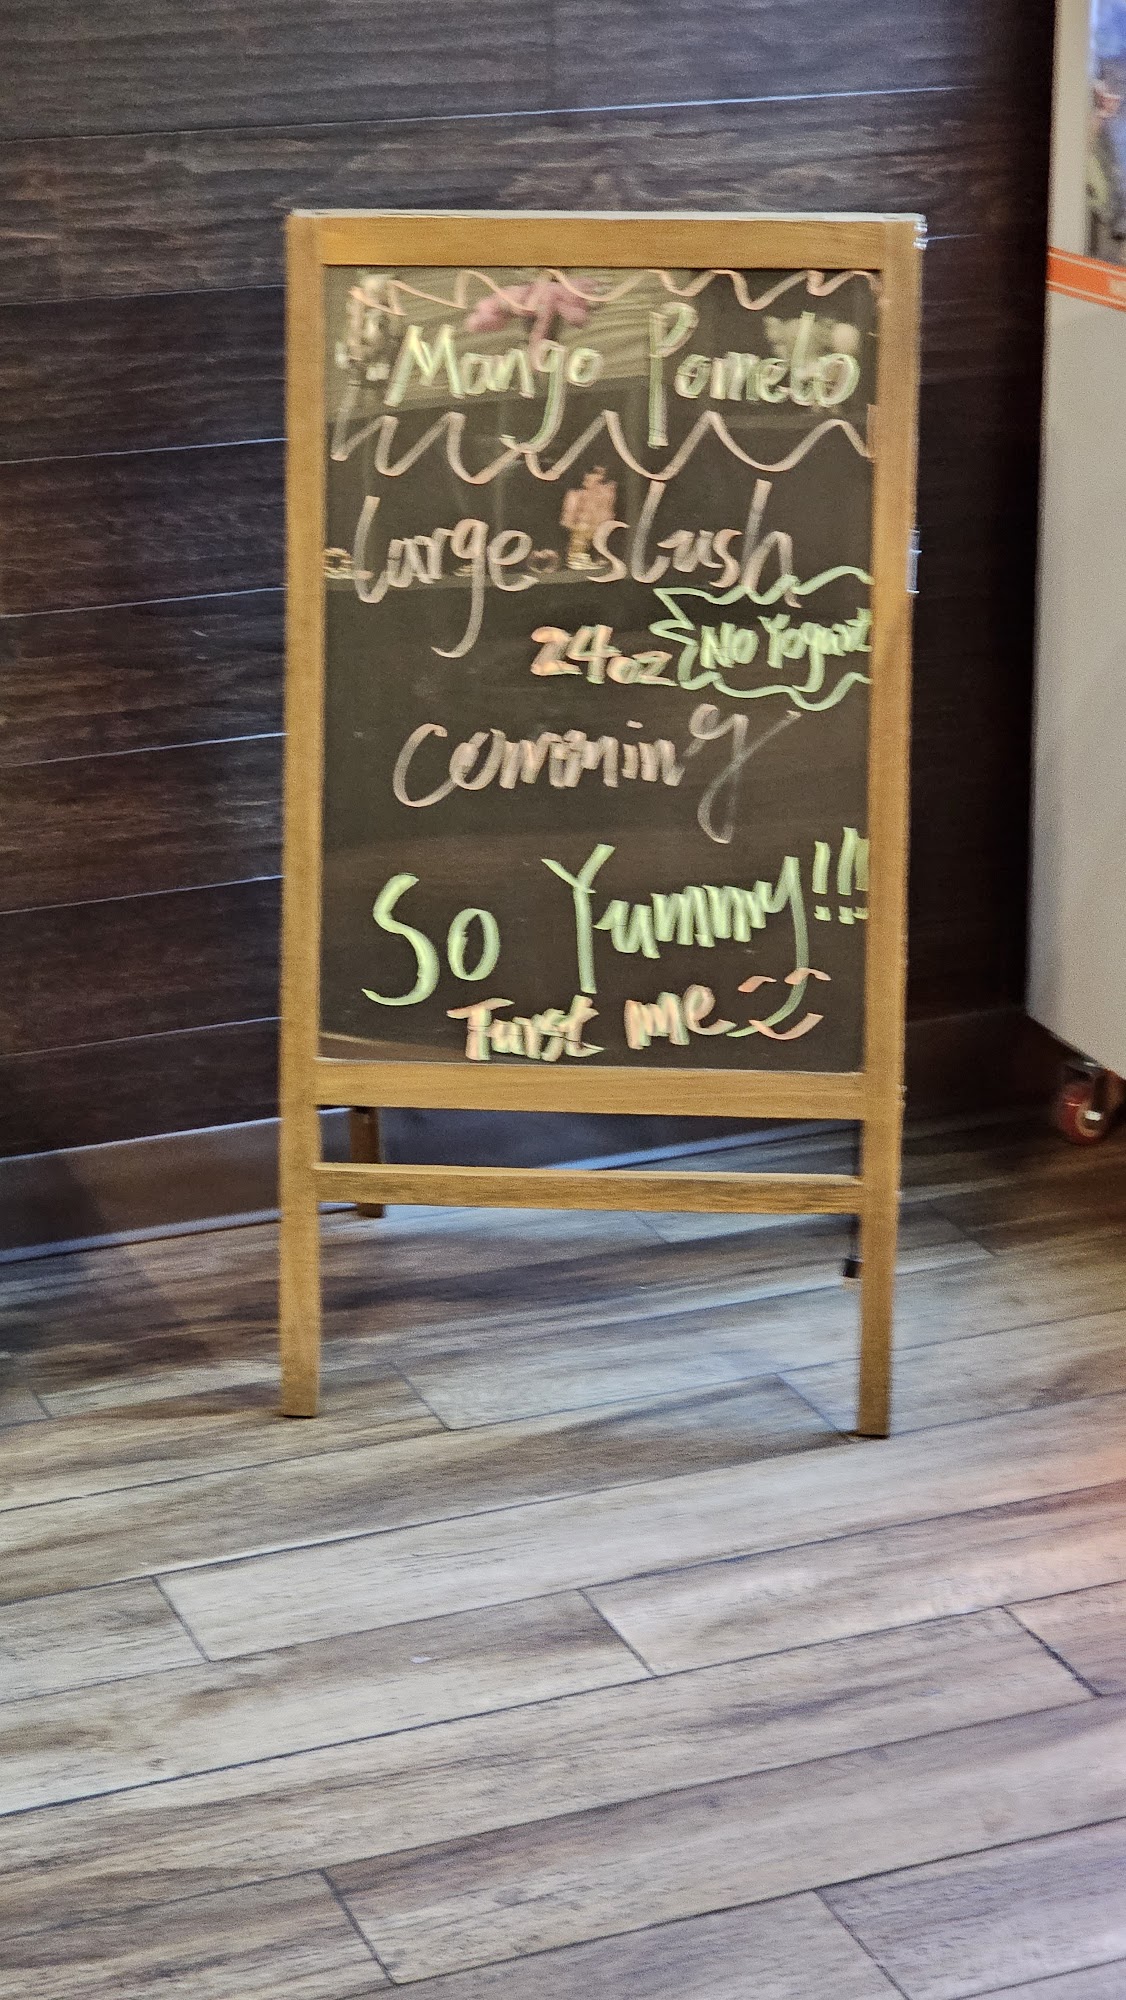 Mango Pomelo
large slush
24oz No Yogurt
Comming
So Yummy!!!
Turst me